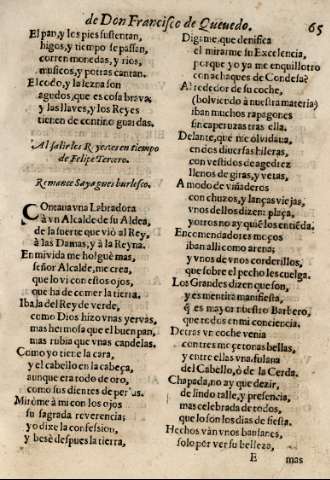 de Don Francisco de Queuedo. 65
El pan, y les pies sustentan,
higos, y tiempo se passan,
corren monedas, y rios,
musicos, y potras cantan.
El codo, y la lezna son
agudos, que es cosa braua:
y las llaues, y los Reyes
tienen de contino guardas.
Al salir los Reyes en tiempo
de Felipe Tercero.
Romance Sayagues burlesco.
COntaua vna Labradora
à vn Alcalde de su Aldea,
de la suerte que viò al Rey,
à las Damas, y à la Reyna.
En mi vida me holguè mas,
señor Alcalde, me crea,
que lo vi con estos ojos,
que ha de comer la tierra.
Iba la del Rey de verde,
como Dios hizo vnas yervas,
mas hermosa que el buen pan,
mas rubia que vnas candelas.
Como yo tiene la cara,
y el cabello en la cabeça,
aunque era todo de oro,
como sus dientes de perlas.
Miròme à mi con los ojos
su sagrada reverencia;
yo dixe la confession,
y besè despues la tierra.
Digame, que denifica
el mirarme su Excelencia,
porque yo ya me enquillotro
con achaques de Condesa?
Al rededor de su coche,
(bolviendo à nuestra materia)
iban muchos rapagones
sin caperuzas tras ella.
Delante, que me olvidaua,
en dos diversas hileras,
con vestidos de agedrez
llenos de giras, y vetas,
A modo de viñaderos
con chuzos, y lanças viejas,
vnos dellos dizen: plaça,
y otros no ay quiẽ los entiẽda.
Encomendadores moços
iban alli como arena;
y vnos de vnos corderillos,
que sobre el pecho les cuelga.
Los Grandes dizen que son,
y es mentira manifiesta,
q̃ es mayor nuestro Barbero,
que todos en mi conciencia.
Detràs vn coche venia
con tres moçetonas bellas,
y entre ellas vna fulana
del Cabello, ò de la Cerda.
Chapada, no ay que dezir,
de lindo talle, y presencia,
mas celebrada de todos,
que lo son los dias de fiesta.
Hechos vàn vnos bausanes,
solo por ver su belleza,
E mas